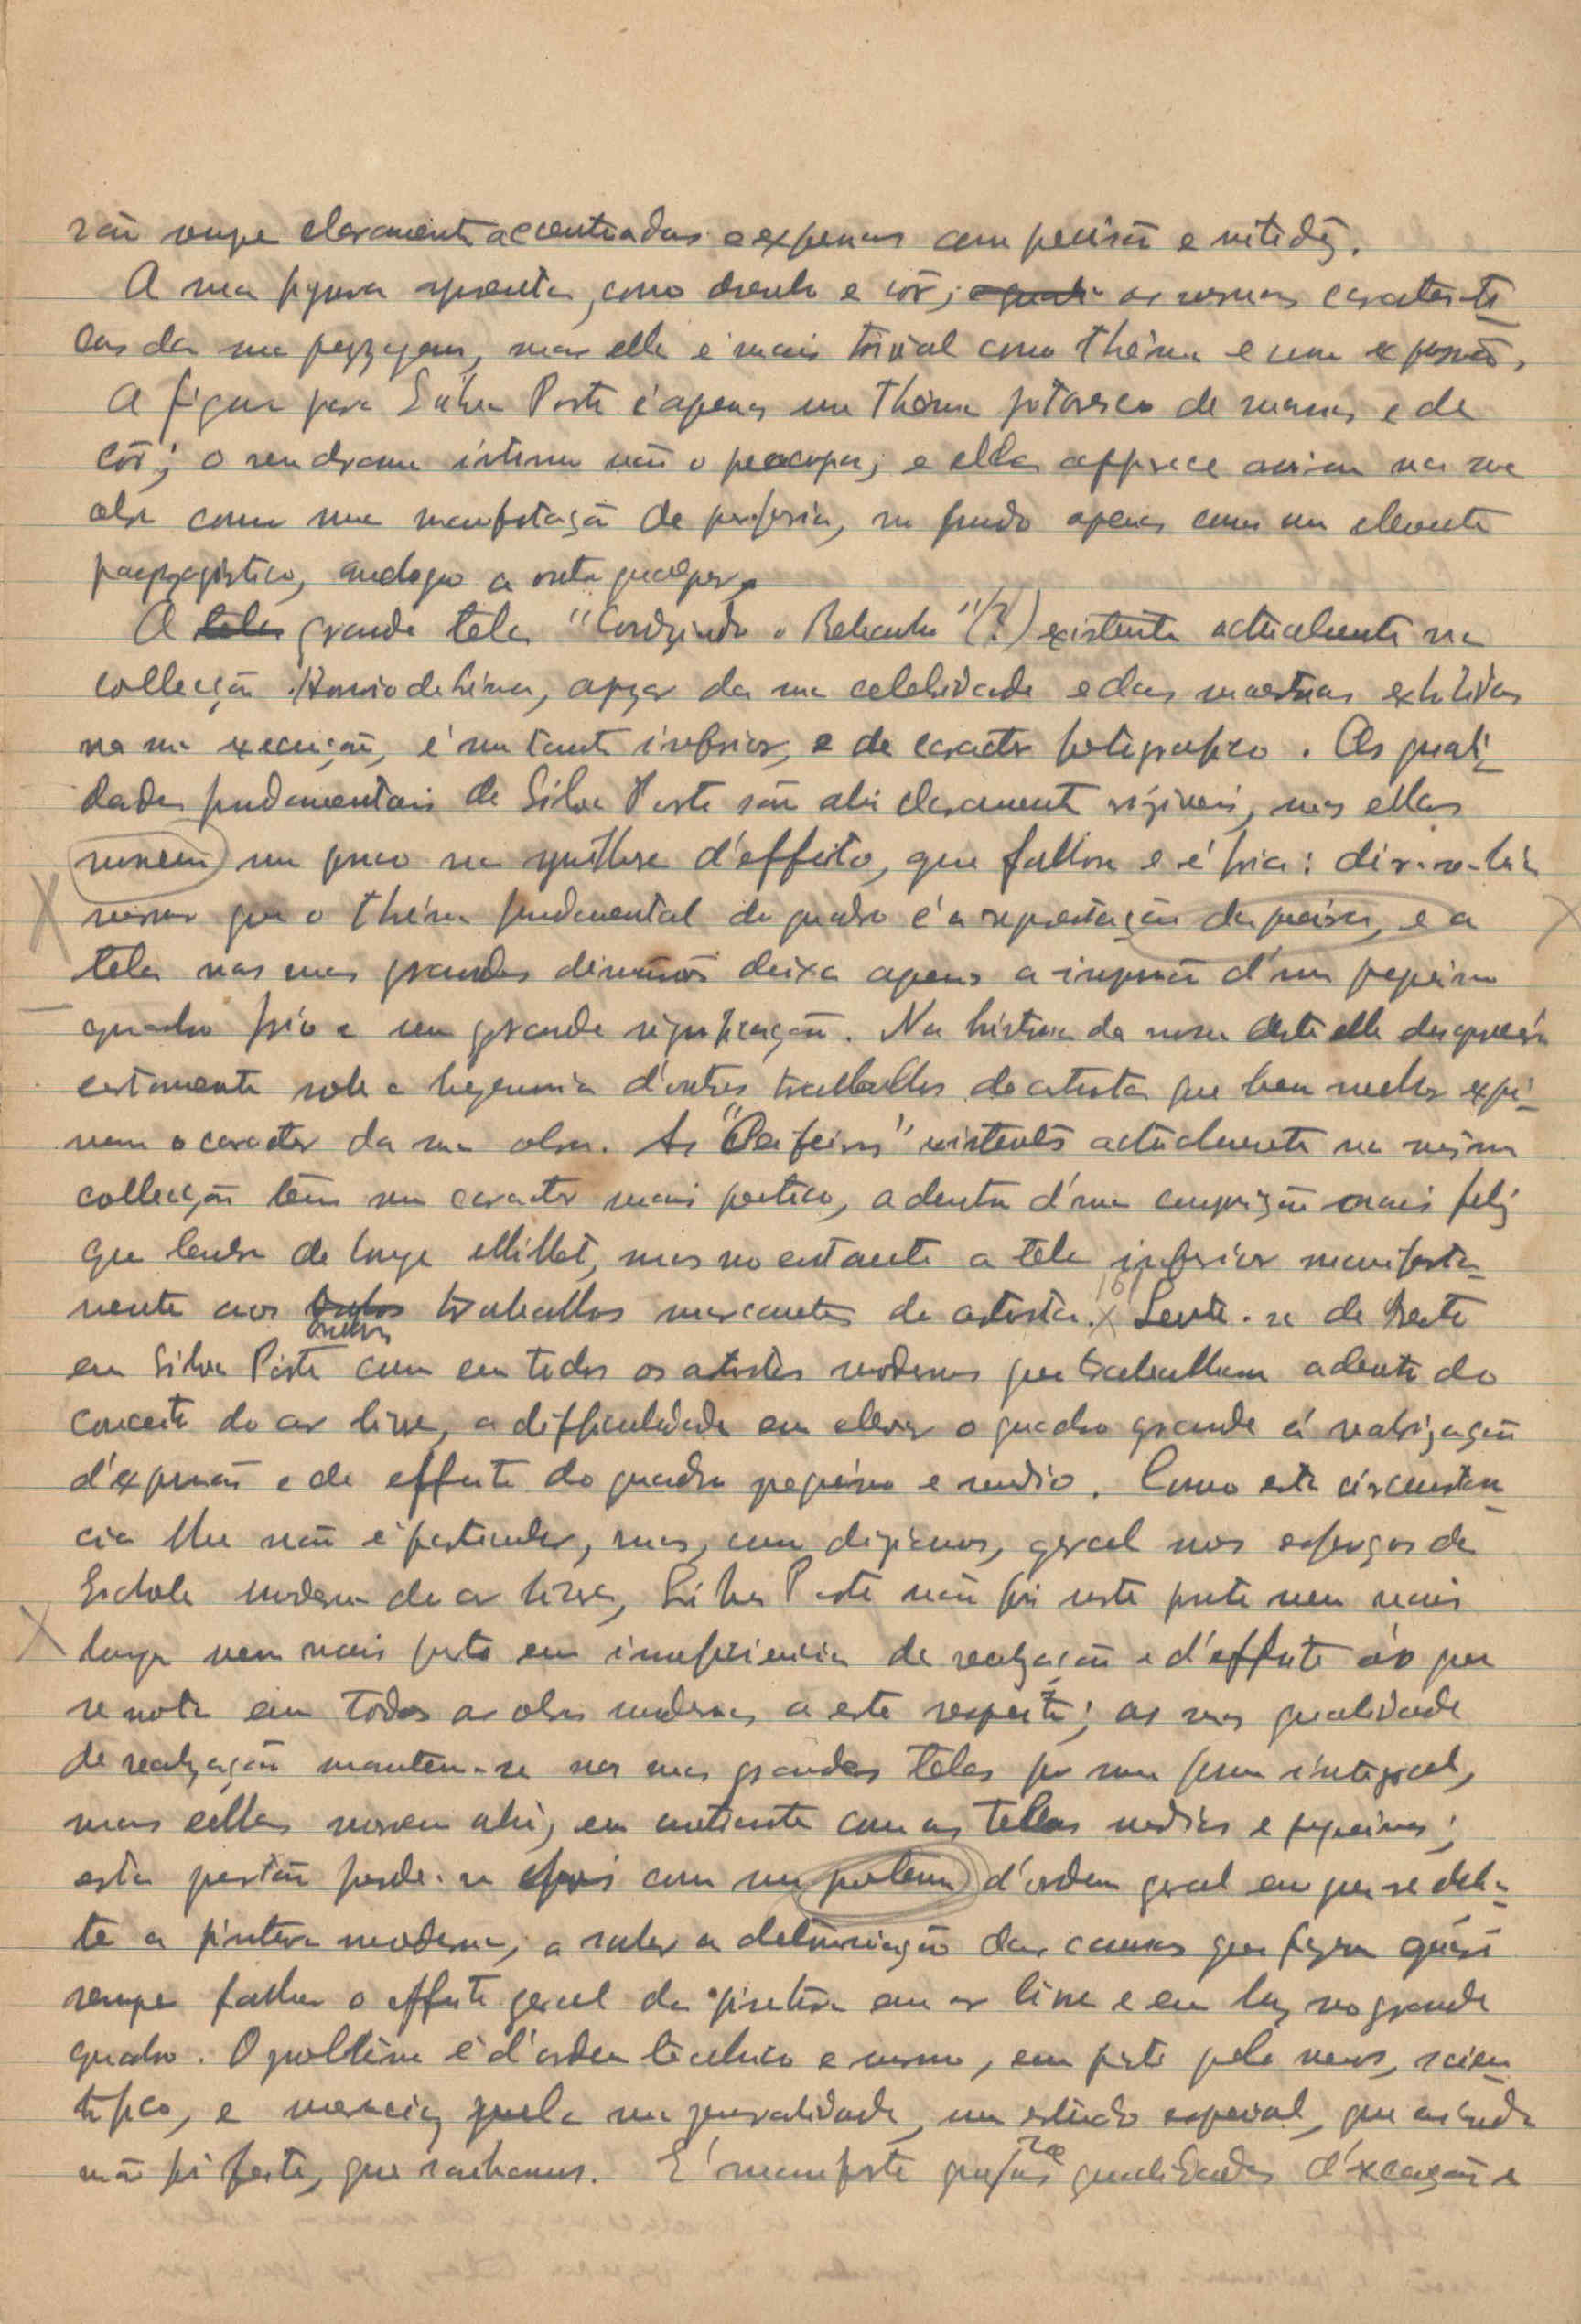 são sempre claramente accentuadas e expressas com precisão e nitidez.
A sua figura apresenta, como desenho e côr, as mesmas caracteristi-
cas da sua payzagem, mas ella é mais trivial como théma e como expressão.
A figura para Silva Porto é apenas um théma pittoresco de massas e de
côr; o seu drama intimo não o preoccupa; e ella apparece assim na sua
obra como uma manifestação de peripheria, no fundo apenas como um elemento
payzagistico, analogo a outro qualquer.
A grande tela "Conduzindo o Rebanho" (?) existente actualmente na
collecção Honorio de Lima, apezar da sua celebridade e das mestrias exhibidas
na sua execução, é um tanto inferior, e de caracter photographico. As quali-
dades fundamentaes de Silva Porto são ahi claramente visiveis, mas ellas
um pouco na synthese d'effeito, que falhou e é fria: dir-se-hia
mesmo que o théma fundamental do quadro é a representação da poeira, e a
tela nas suas grandes dimensões deixa apenas a impressão d'um pequeno
quadro frio e sem grande significação. Na historia da nossa Arte elle desapparecerá
certamente sob a hegemonia d'outros trabalhos do artista que bem melhor expri-
mem o caracter da sua obra. As "Ceifeiras" existentes actualmente na mesma
collecção têm um caracter mais poetico, adentro d'uma composição mais feliz
que lembra de longe Millet, mas no entanto a tela inferior manifesta-
mente aos outros trabalhos marcantes do artista. Sente-se de resto
em Silva Porto como em todos os artistas modernos que trabalham adentro do
conceito do ar livre, a difficuldade em elevar o quadro grande á realização
d'expressão e de effeito do quadro pequeno e medio. Como esta circumstan-
cia lhe não é particular, mas, como dizemos, geral nos esforços da
Eschola moderna do ar livre, Silva Porto não foi neste ponto nem mais
longe nem mais perto em insufficiencia de realização e d'effeito do que
se nota em todas as obras modernas a este respeito; as suas qualidades
de realização mantem-se nas suas grandes telas por uma forma integral,
mas ellas ahi, em contraste com as telas medias e pequenas;
esta questão perde-se com um problema d'ordem geral em que se deba-
te a pintura moderna, a saber a determinação das causas que fazem quasi
sempre falhar o effeito geral da pintura em ar livre e em luz no grande
quadro. O problema é d'ordem technico e mesmo, em parte pelo menos, scien-
tifico, e merecia, pela sua generalidade, um estudo especial, que ainda
não foi feito, que saibamos. É manifesto que as qualidades d'execução e